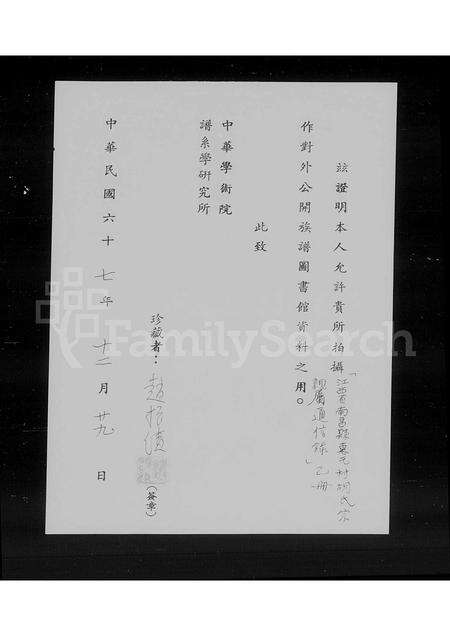 玆證明本人允許貴所拍攝「江西省南昌縣東元村胡氏宗
親屬通信錄」乙冊
作對外公開族譜圖書館資料之用。
此致
中華學術院
譜系學研究所
珍藏者：趙振績
(簽章)
中華民國六十七年十二月廿九日
FamilySearch